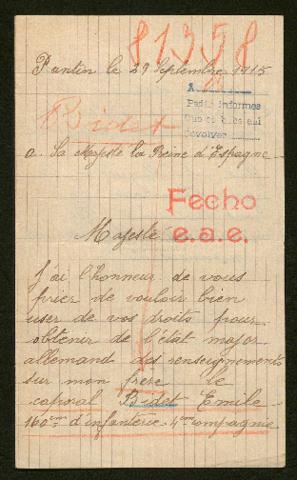 81358
Pantin le 29 Septembre 1915
Pedir informes
devolver
Bidet
a Sa Majesté la Reine d'Espagne
Fecho
e.a.e.
Majesté
J'ai l'honneur de vous
prier de vouloir bien
user de vos droits pour
obtener de l'état major
allemand des renseignements
sur mon frère le
caporal Bidet Emile
160em d'infanterie 4em compagnie